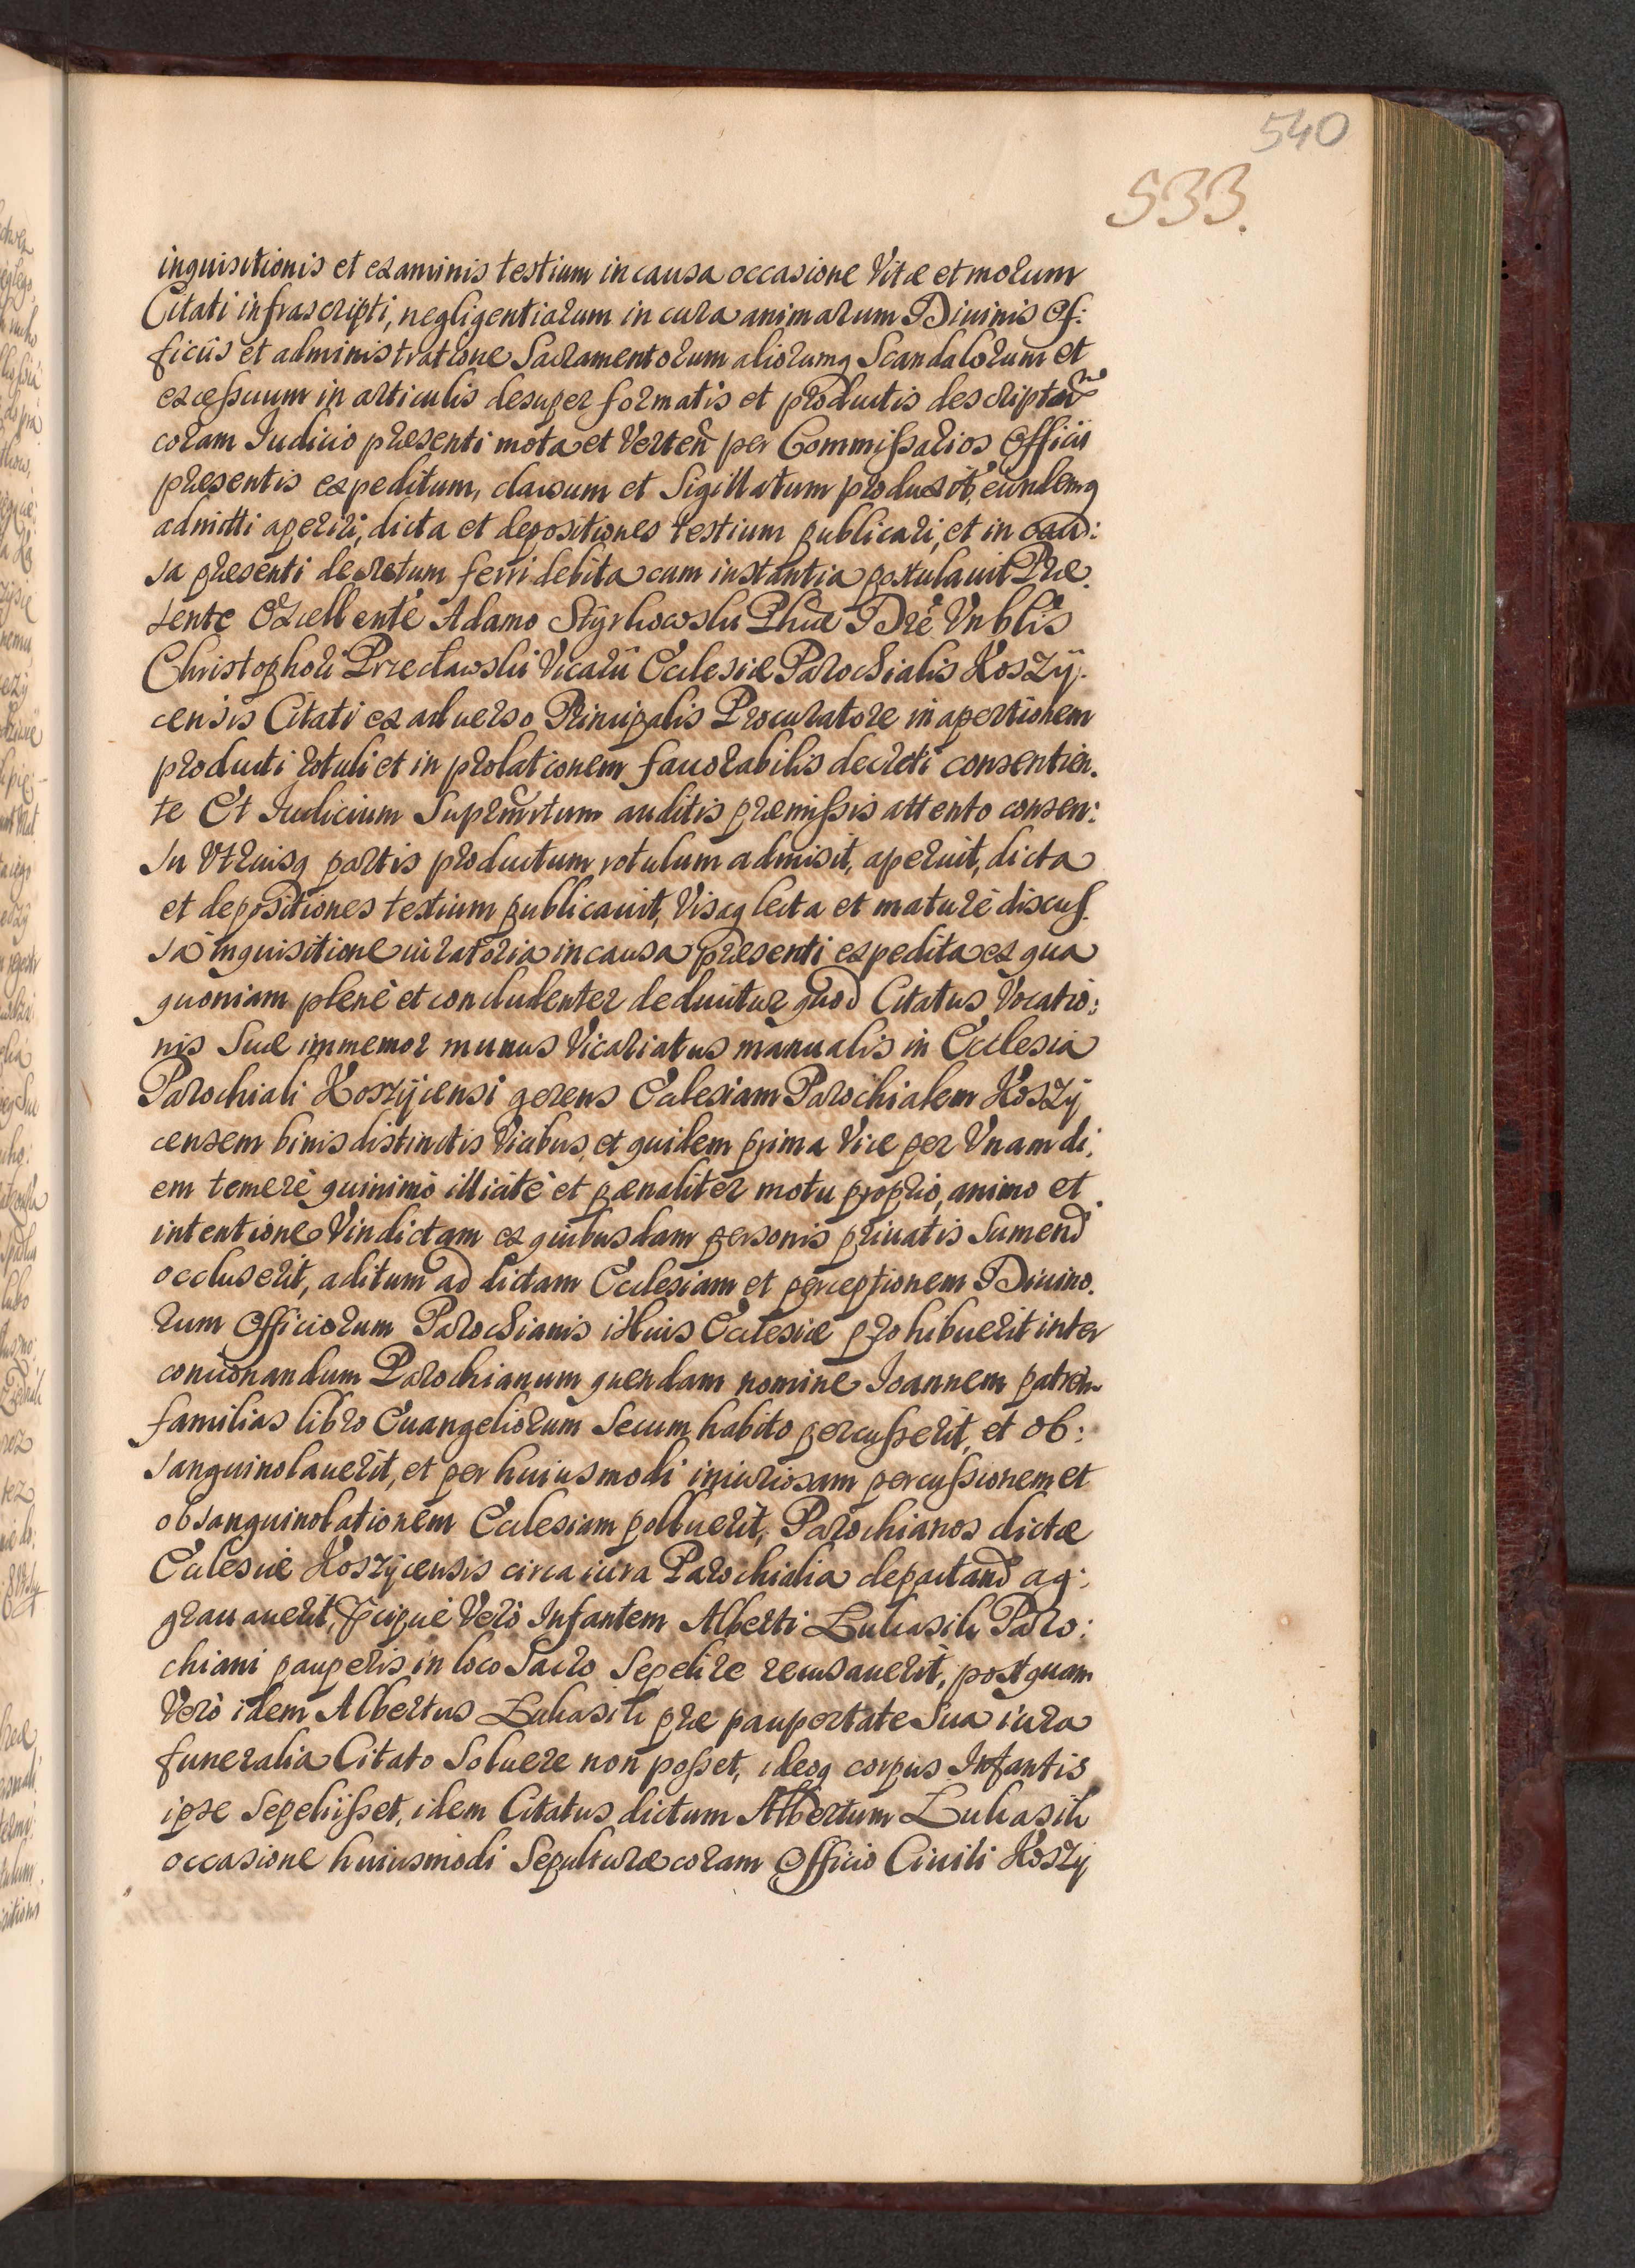 540
533.
inquisitionis et examinis testium in causa occasione Vitæ et morum
Citati infrascripti, negligentiarum in cura animarum Diuinis Of:
ficiis et administratione Sacramentorum aliorumq Scandalorum et
excessuum in articulis desuper formatis et productis descriptar
coram Iudicio præsenti mota et Verteñ per Commissarios Officii
præsentis expeditum, clausum et Sigillatum produxit, eundemq
admitti aperiri, dicta et depositiones testium publicari, et in cau:
sa præsenti decretum ferri debita cum instantia postulauit Præ.
sente Excellente Adamo Styrkowski Phiæ Dre Vnblis
Christophori Przecławski Vicarii Ecclesiæ Parochialis Koszÿ.
censis Citati ex aduerso Principalis Procuratore in apertionem
producti rotuli et in prolationem fauorabilis decreti consentien.
te Et Iudicium Suprmrtum auditis præmissis attento consen:
su Vtriusq partis productum rotulum admisit, aperuit, dicta
et depositiones testium publicauit, Visaq lecta et maturè discus.
sa inquisitione iuratoria in causa præsenti expedita ex qua
quoniam plenè et concludenter deducitur quod Citatus Vocatio:
nis Suæ immemor munus Vicariatus manualis in Ecclesia
Parochiali Koszÿcensi gerens Ecclesiam Parochialem Koszÿ
censem binis distinctis Vicibus, et quidem prima Vice per Vnam di:
em temerè quinimò illicitè et pœnaliter motu proprio, animo et
intentione Vindictam ex quibusdam personis priuatis Sumend
occluserit, aditum ad dictam Ecclesiam et perceptionem Diuino.
rum Officiorum Parochianis illius Ecclesiæ prohibuerit inter
concionandum Parochianum quendam nomine Joannem patrem
familias libro Euangeliorum Secum habito percusserit, et ob:
sanguinolauerit, et per huiusmodi iniuriosam percussionem et
obsanguinolationem Ecclesiam polluerit, Parochianos dictæ
Ecclesiæ Koszÿcensis circa iura Parochialia depactand ag:
grauauerit, Præcipuè Verò Infantem Alberti Łukasik Paro:
chiani pauperis in loco Sacro Sepelire recusauerit, postquam
Verò idem Albertus Łukasik præ paupertate Sua iura
funeralia Citato Soluere non posset, ideoq corpus Infantis
ipse Sepeliisset, idem Citatus dictum Albertum Łukasik
occasione huiusmodi Sepulturæ coram Officio Ciuili Koszÿ